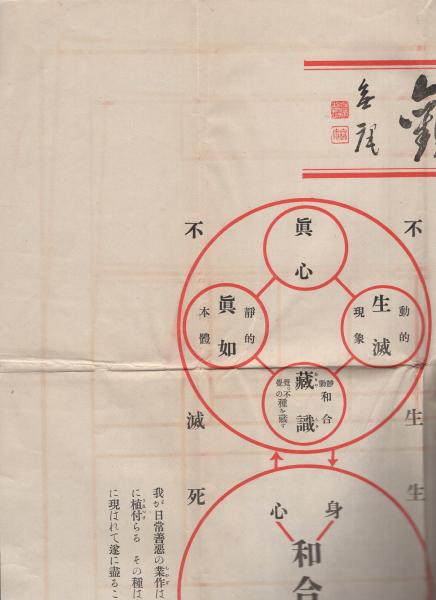 不生
不滅
眞心
動的
生滅
現象
靜的
眞如
本體
靜動
和合
藏識
覺。不
覺の
種を藏す
生
死
身
心
和合
我が日常善惡の業作は
に植付らる その種は
に現はれて遂に盡るこ